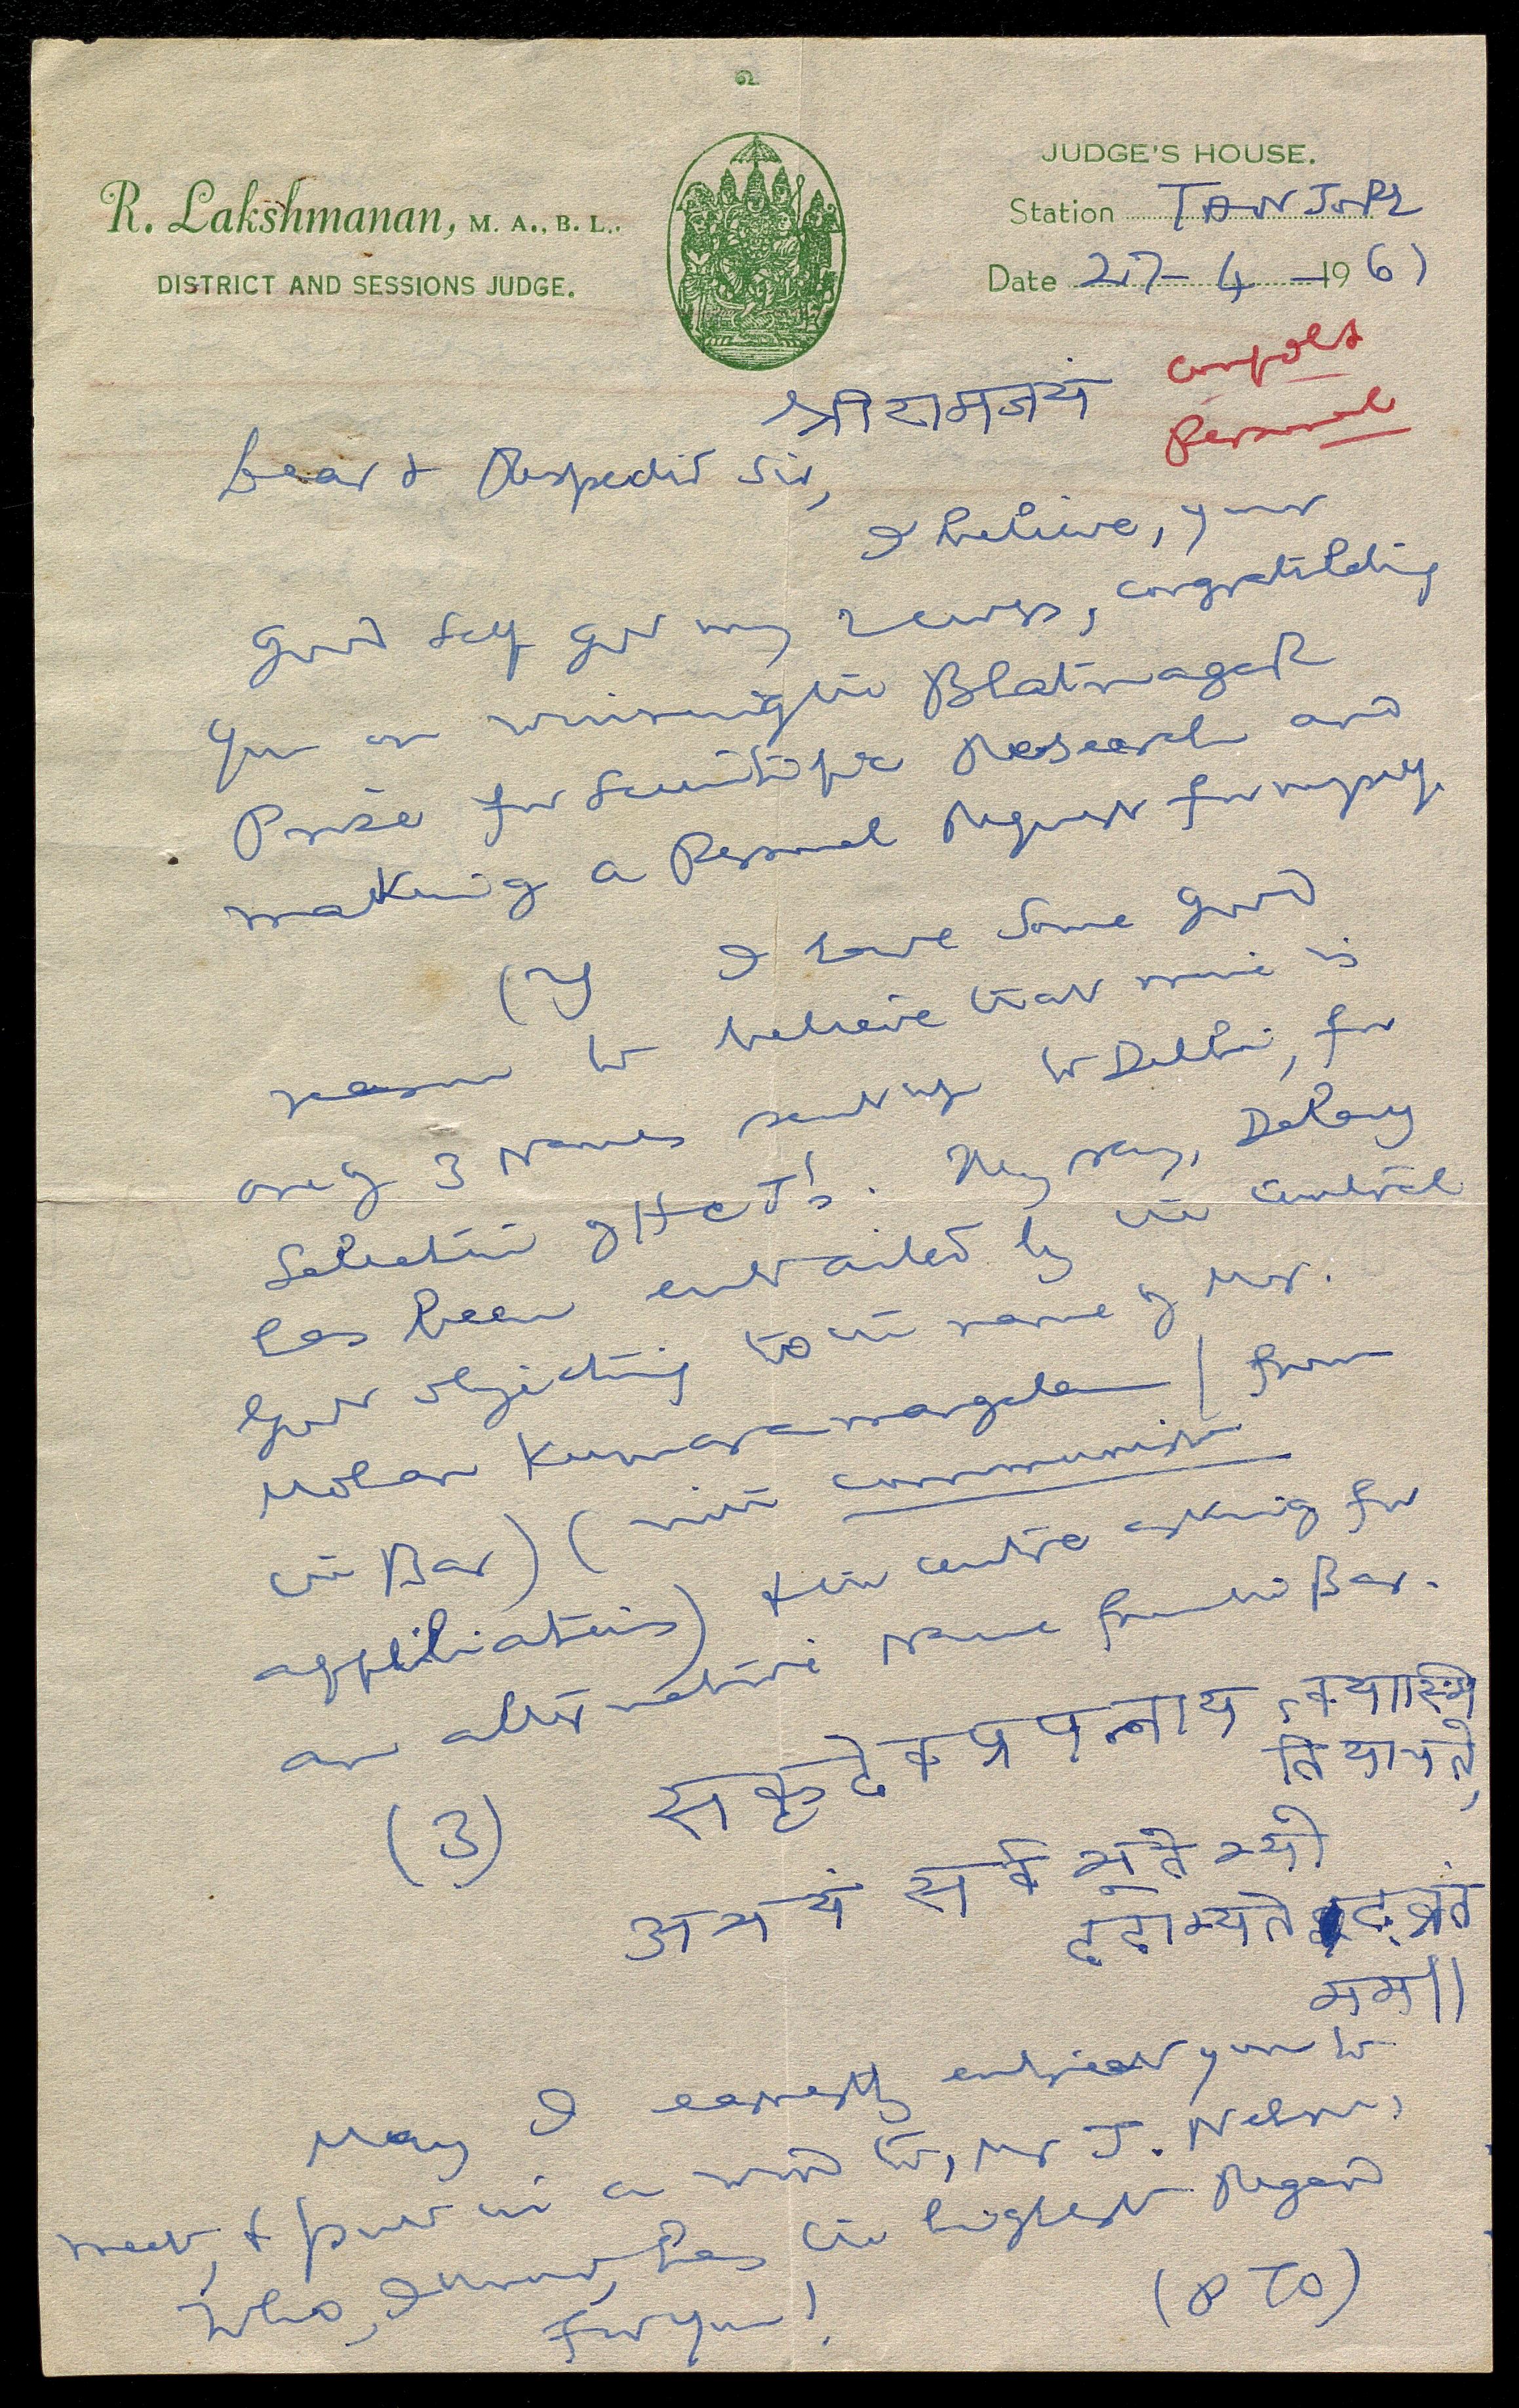 உ
JUDGE'S HOUSE.
R. Lakshmanan, M. A., B. L.,
DISTRICT AND SESSIONS JUDGE.
Station TANJORE
Date 27-4-1961
श्रीरामजयं
Confdl &
Personal
Dear & Respected Sir,
I believe, your
good self got my letters, congratulating
you on winning the Bhatnagar
Prize for Scientific Research and
making a Personal Request for myself.
(2) I have some good
reason to believe that mine is
one of 3 names sent up to Delhi, for
Selection of HCJ's. They say, Delay
has been entailed by the Central
Govt objecting to the name of Mr.
Mohan Kumaramangalam (from
the Bar) (with communist
affiliations) & the centre asking for
an alternative name from the Bar.
(3) सकृदेव प्रपन्नाय तवास्मी
ति याचते,
अभयं सर्वभूतेभ्यो
ददाम्येतद् व्रतं
मम॥
May I earnestly entreat you to
meet, & put in a word to, Mr J. Nehru,
who, I know, has the highest Regard
for you!
(PTO)